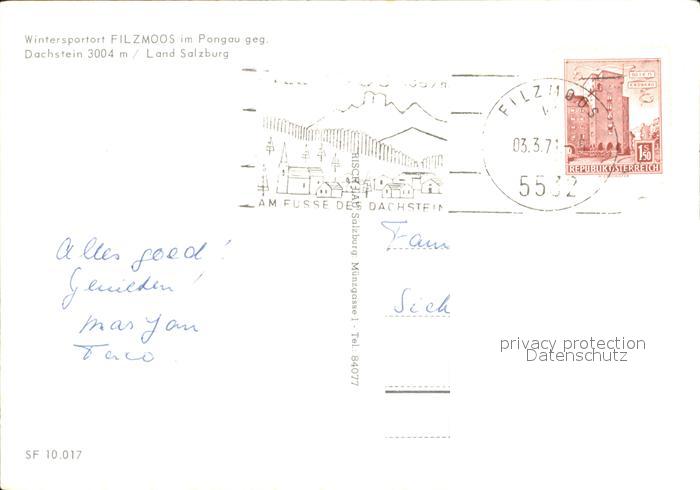 Wintersportort FILZMOOS im Pongau geg.
Dachstein 3004 m / Land Salzburg
FILZMOOS
03.3.71
5532
WIEN
ERDBERG
1S50
REPUBLIK ÖSTERREICH
AM FUSSE DES DACHSTEIN
Salzburg, Münzgasse 1 - Tel. 84077
Alles goed!
marjan
Taco
Fam
Sich
privacy protection
Datenschutz
SF 10.017